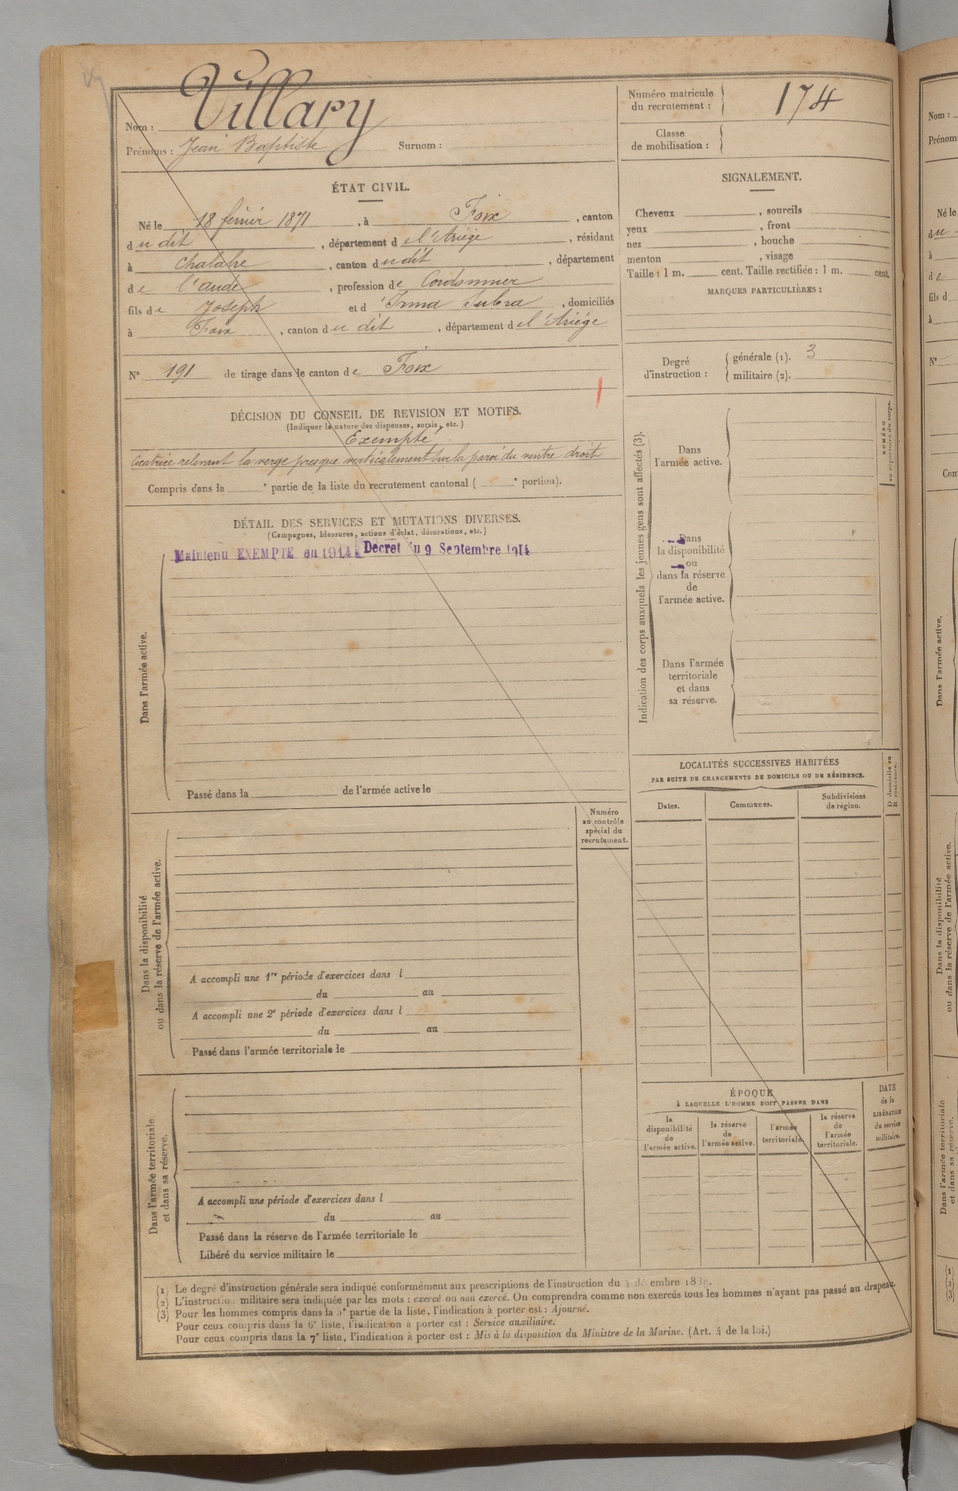 Nom : Villary
Prénoms : Jean Baptiste Surnom :
Numéro matricule
du recrutement : 174
Classe
de mobilisation :
ÉTAT CIVIL.
Né le 18 février 1871, à Foix, canton
du dit, département de l'Ariége, résidant
à Chalabre, canton du dit, département
de l'aude, profession de Cordonnier
fils de Joseph et d'Irma Subra, domiciliés
à Foix, canton du dit, département de l'Ariége
N° 191 de tirage dans le canton de Foix
SIGNALEMENT.
Cheveux , sourcils
yeux , front
nez , bouche
menton , visage
Taille : 1 m. cent. Taille rectifiée : 1 m. cent.
MARQUES PARTICULIÈRES :
Degré
d'instruction :
générale (1). 3
militaire (2).
DÉCISION DU CONSEIL DE REVISION ET MOTIFS.
(Indiquer la nature des dispenses, sursis, etc.)
Exempté
Cicatrice relevant la verge presque verticalement sur la paroi du ventre droit
Compris dans la e partie de la liste du recrutement cantonal ( e portion).
DÉTAIL DES SERVICES ET MUTATIONS DIVERSES.
(Campagnes, blessures, actions d'éclat, décorations, etc.)
Maintenu EXEMPTE en 1914 Decret du 9 Septembre 1914
Dans l'armée active.
Passé dans la de l'armée active le
Indication des corps auxquels les jeunes gens sont affectés (3).
Dans
l'armée active.
Dans
la disponibilité
ou
dans la réserve
de
l'armée active.
Dans l'armée
territoriale
et dans
sa réserve.
LOCALITÉS SUCCESSIVES HABITÉES
PAR SUITE DE CHANGEMENTS DE DOMICILE OU DE RÉSIDENCE.
Dates.
Communes.
Subdivisions
de région.
Numéro
au contrôle
spécial du
recrutement.
Dans la disponibilité
ou dans la réserve de l'armée active.
A accompli une 1re période d'exercices dans l
du au
A accompli une 2e période d'exercices dans l
du au
Passé dans l'armée territoriale le
ÉPOQUE
À LAQUELLE L'HOMME DOIT PASSER DANS
la
disponibilité
de
l'armée active.
la réserve
de
l'armée active.
l'armée
territoriale.
la réserve
de
l'armée
territoriale.
DATE
de la
LIBÉRATION
du service
militaire.
Dans l'armée territoriale
et dans sa réserve.
A accompli une période d'exercices dans l
du au
Passé dans la réserve de l'armée territoriale le
Libéré du service militaire le
(1) Le degré d'instruction générale sera indiqué conformément aux prescriptions de l'instruction du
(2) L'instruction militaire sera indiquée par les mots : exercé ou non exercé. On comprendra comme non exercés tous les hommes n'ayant pas passé au drapeau.
(3) Pour les hommes compris dans la partie de la liste, l'indication à porter est : Ajourné.
Pour ceux compris dans la 6e liste, l'indication à porter est : Service auxiliaire.
Pour ceux compris dans la 7e liste, l'indication à porter est : Mis à la disposition du Ministre de la Marine. (Art. 4 de la loi.)